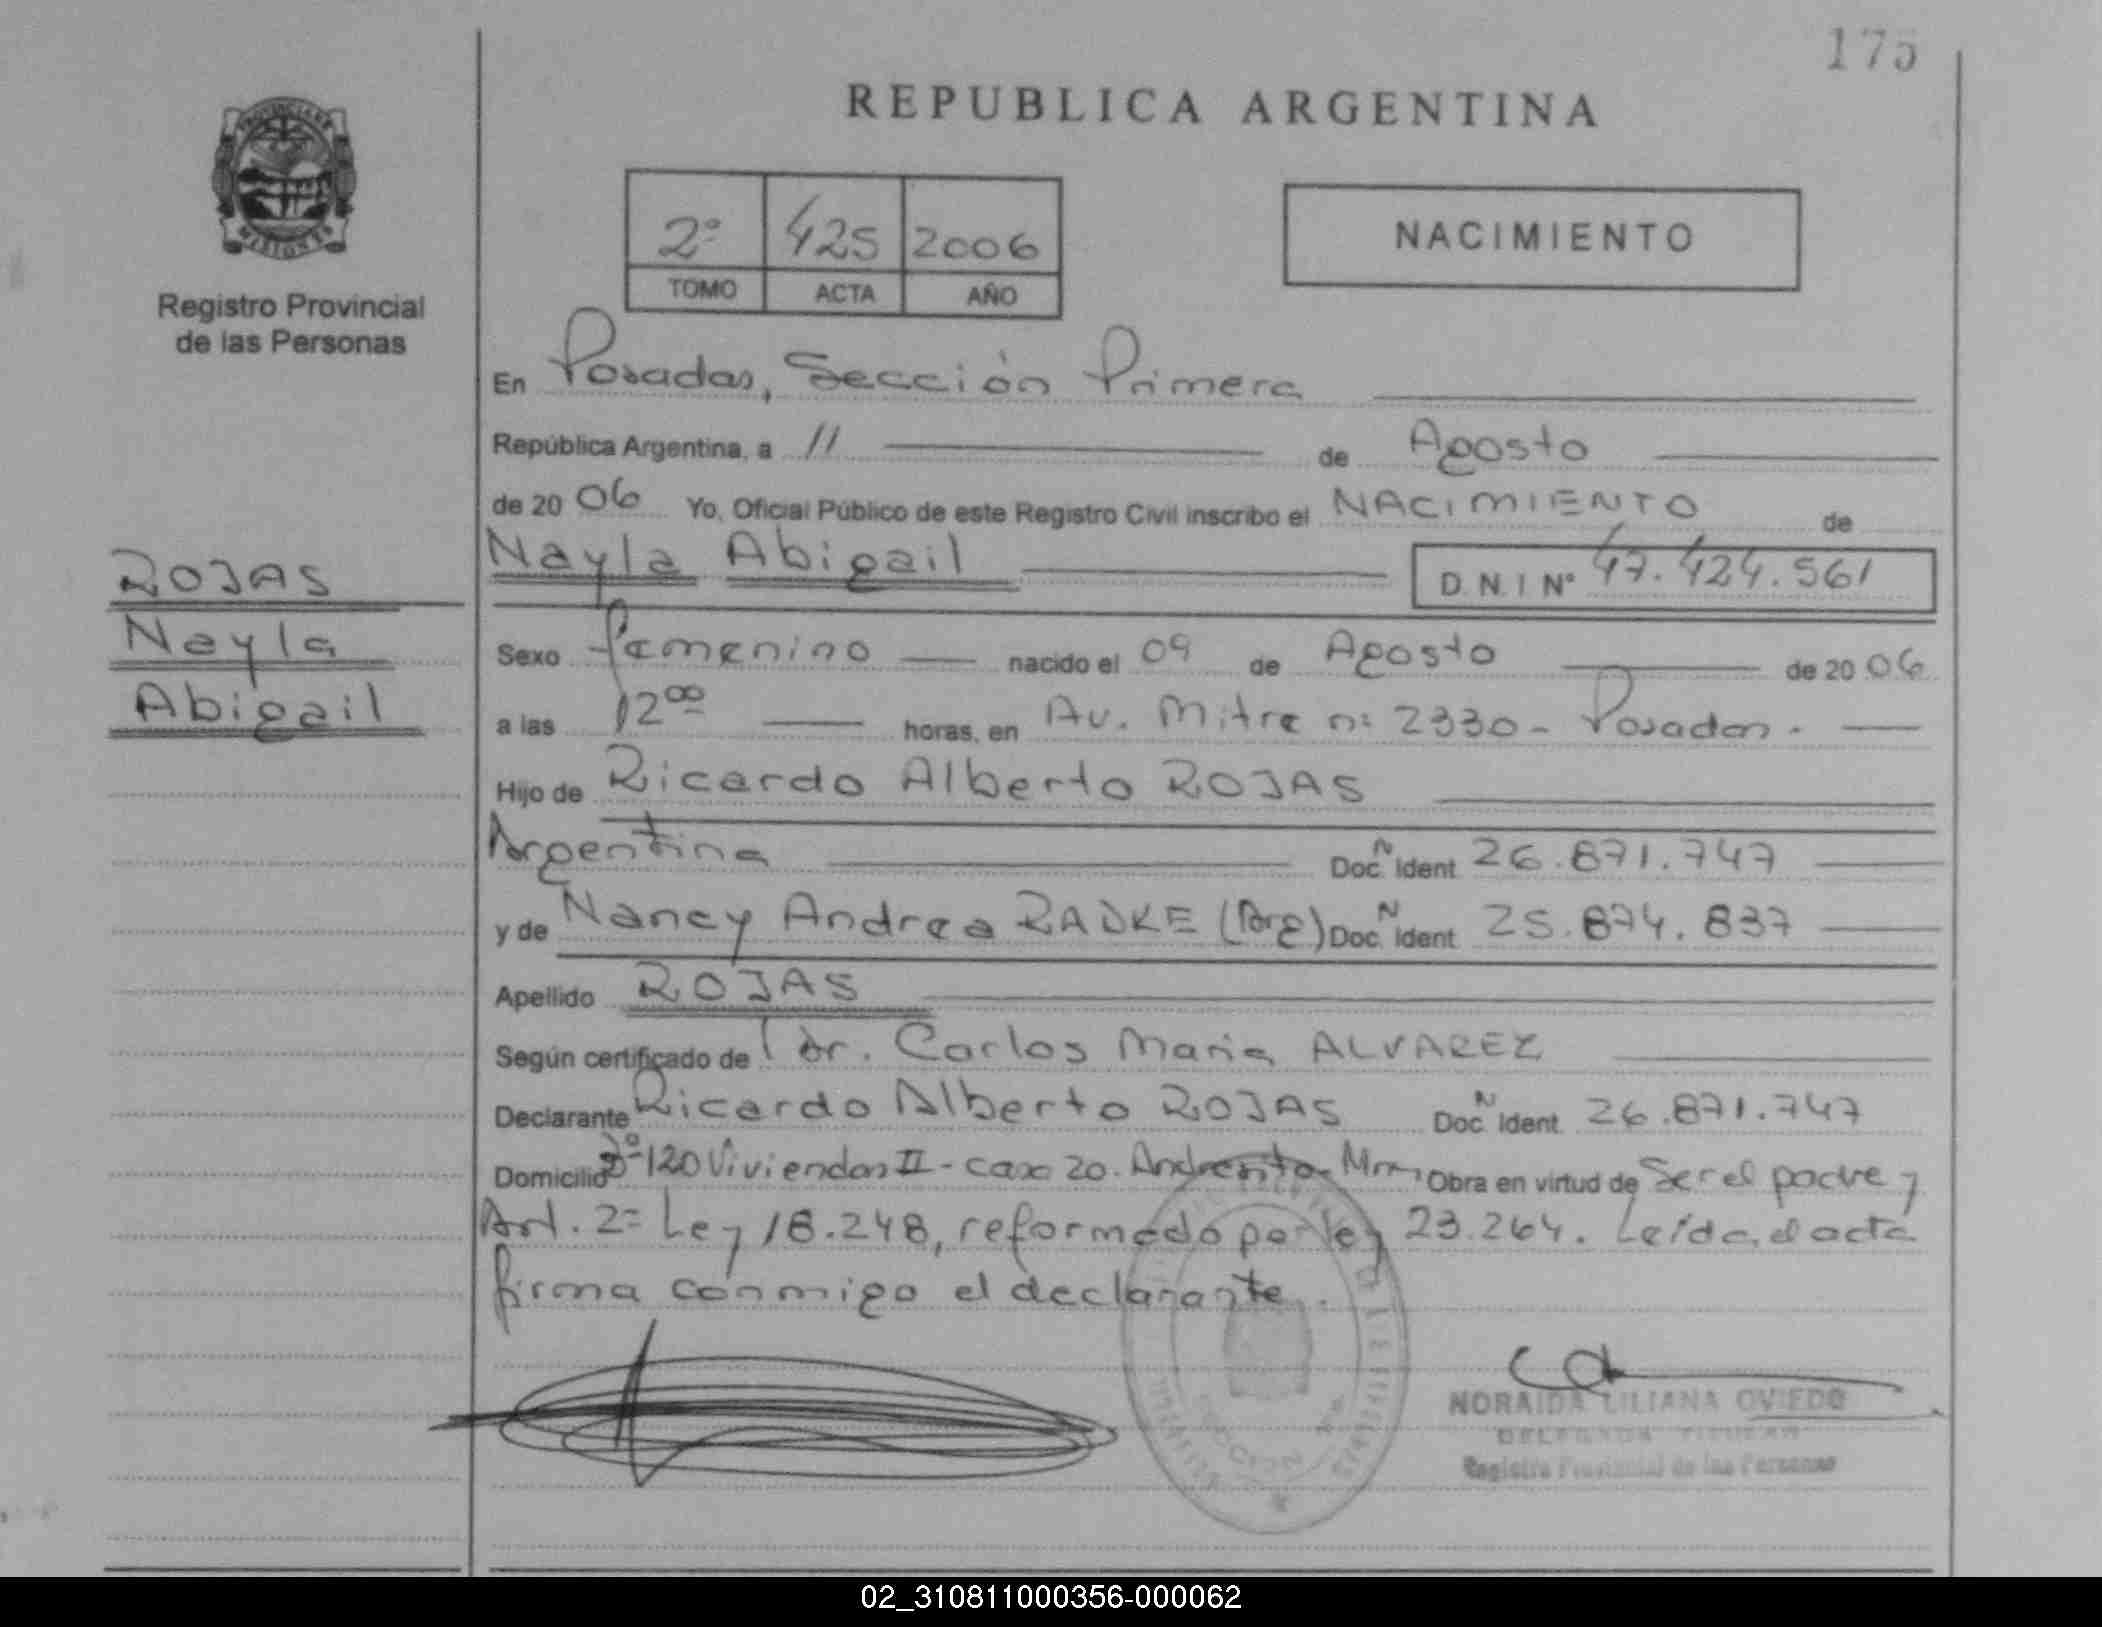 175
REPUBLICA ARGENTINA
PROVINCIA DE
MISIONES
Registro Provincial
de las Personas
2º 425 2006
TOMO ACTA AÑO
NACIMIENTO
En Posadas, Sección Primera
República Argentina, a 11 de Agosto
de 2006 Yo, Oficial Público de este Registro Civil inscribo el NACIMIENTO de
Nayla Abigail D.N.I Nº 47.424.561
ROJAS
Nayla
Abigail
Sexo femenino nacido el 09 de Agosto de 2006
a las 12⁰⁰ horas, en Av. Mitre nº 2330 - Posadas.
Hijo de Ricardo Alberto ROJAS
Argentina Doc. N Ident 26.871.747
y de Nancy Andrea RADKE (Arg) Doc. N Ident 25.874.837
Apellido ROJAS
Según certificado de Dr. Carlos Maria ALVAREZ
Declarante Ricardo Alberto ROJAS Doc. N Ident. 26.871.747
Domicilio Bº 120 Viviendas II - casa 20. Andresito Mnes, Obra en virtud de Ser el padre y
Art. 2º Ley 18.248, reformado por ley 23.264. Leída el acta
firma conmigo el declarante.
NORAIDA LILIANA OVIEDO
DELEGADA TITULAR
Registro Provincial de las Personas
02_310811000356-000062